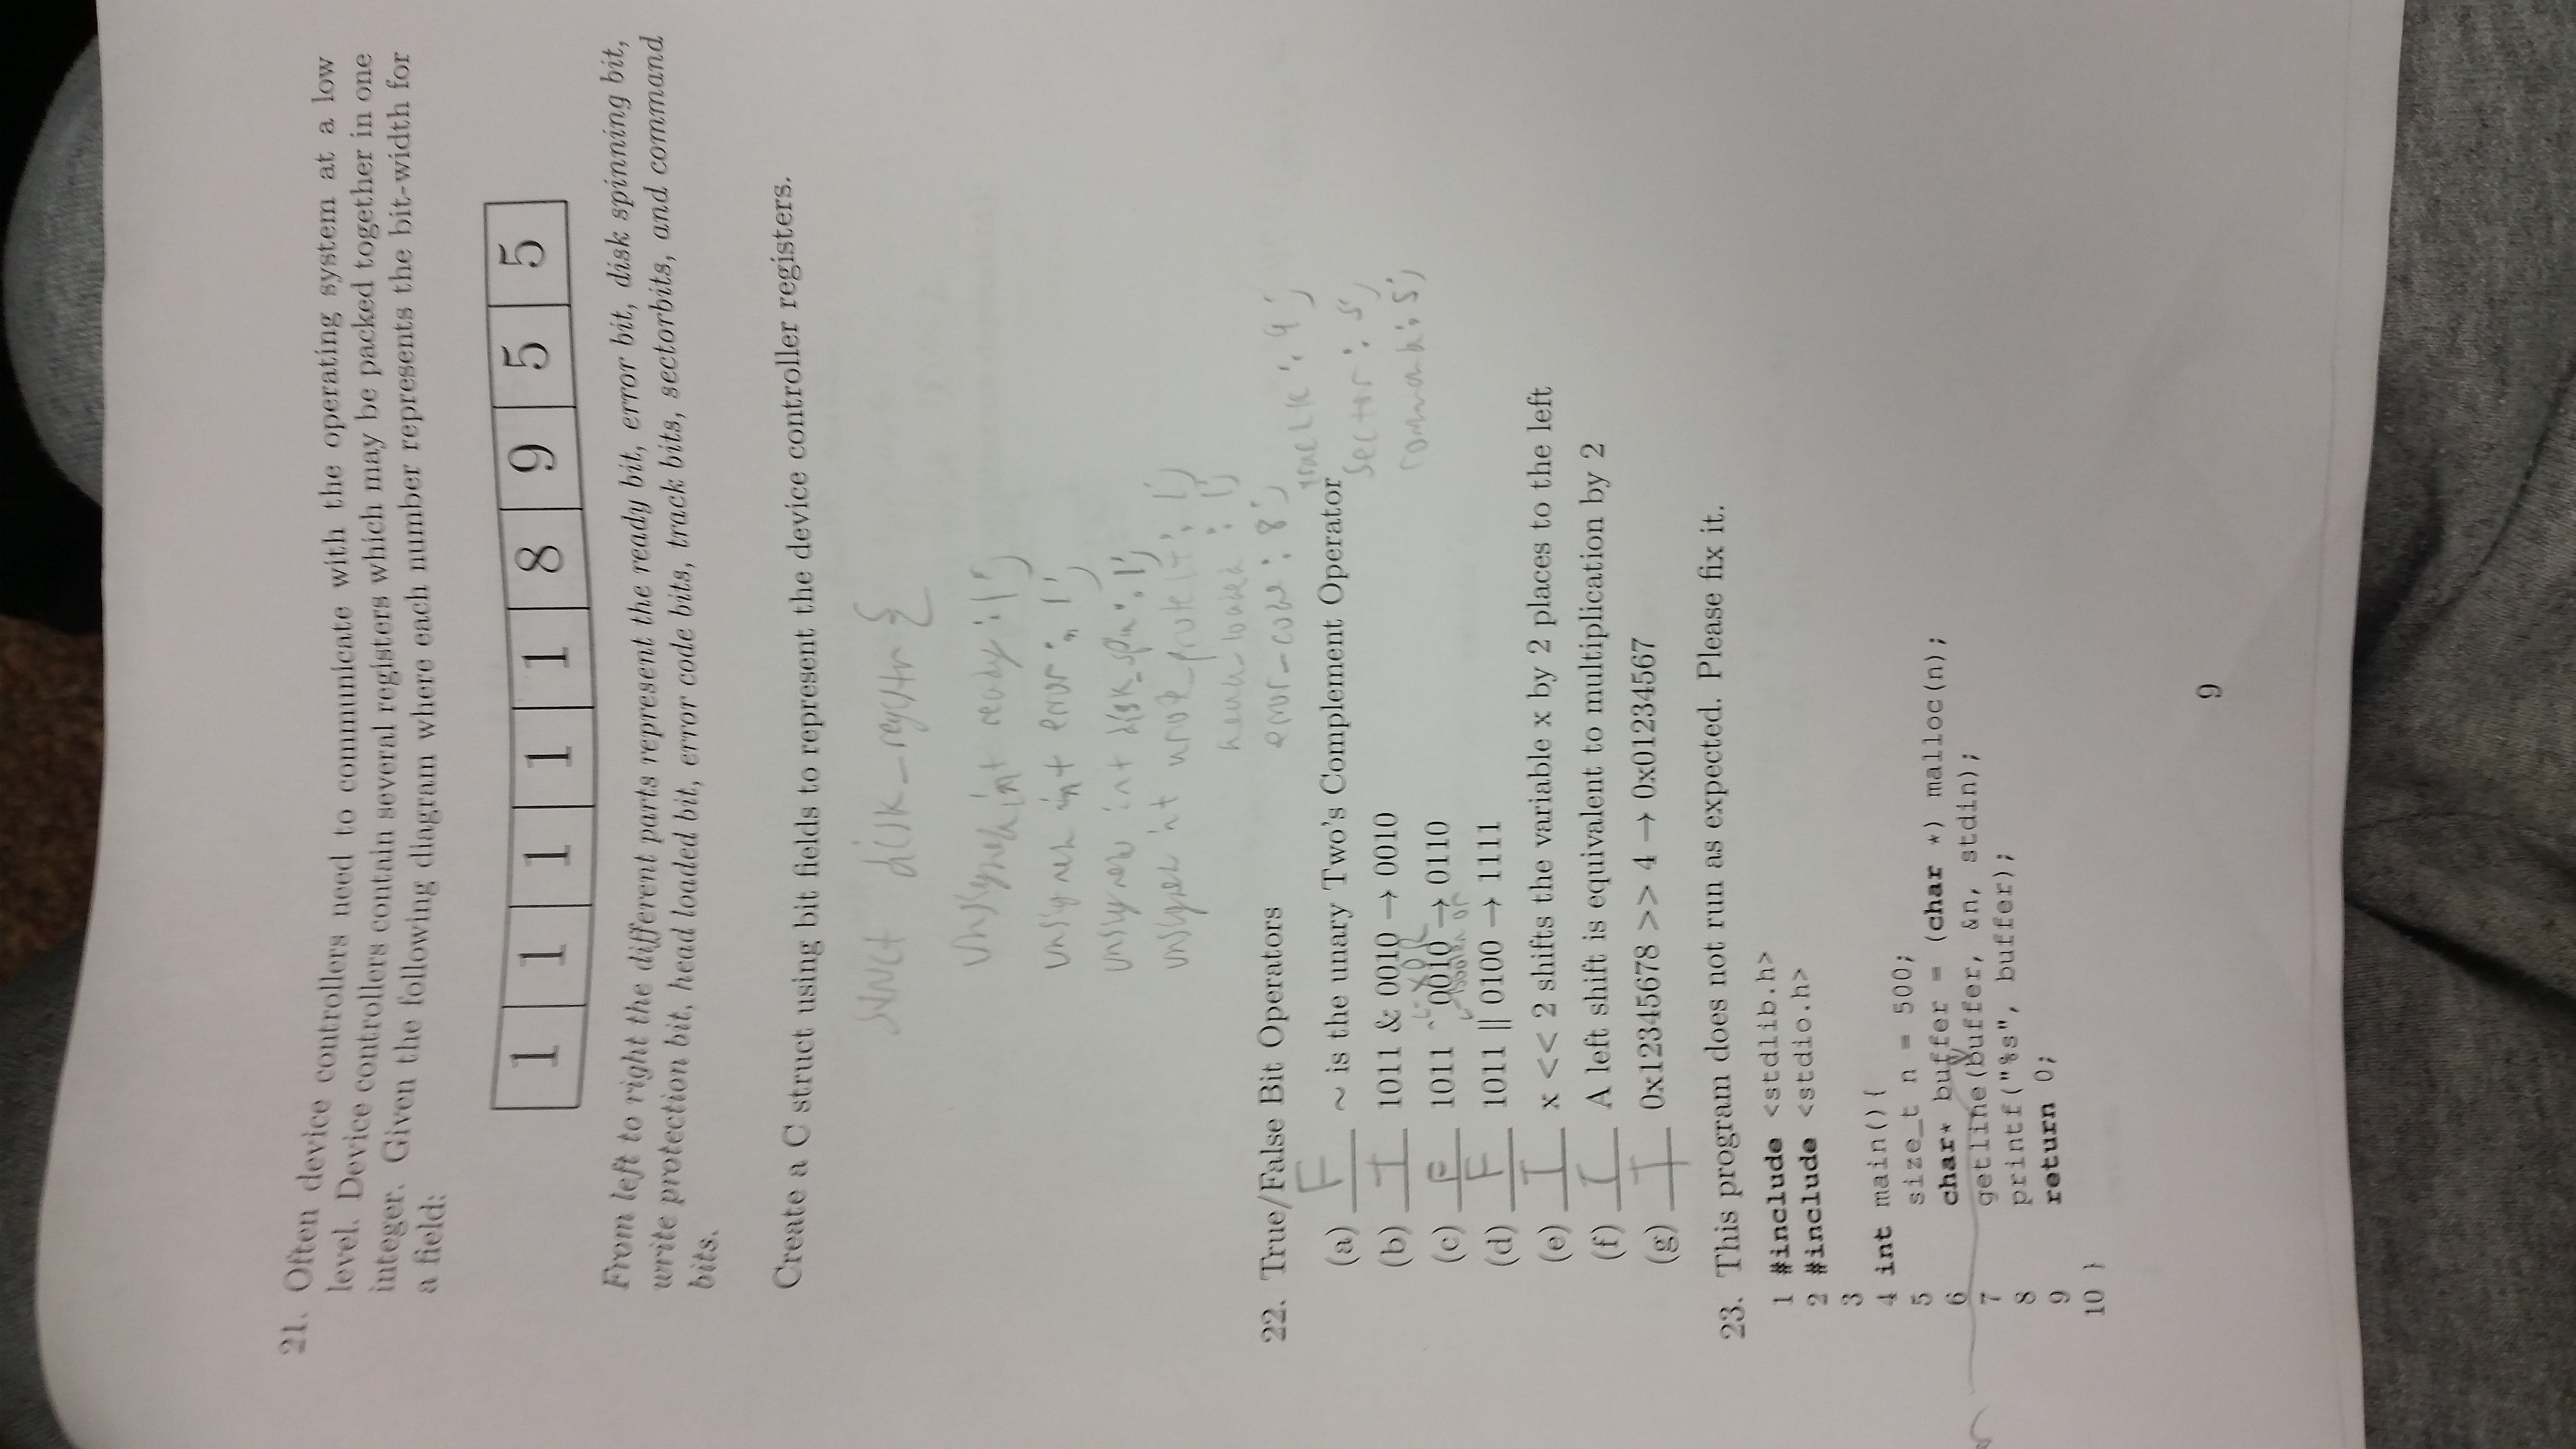 21. Often device controllers need to communicate with the operating system at a low
level. Device controllers contain several registers which may be packed together in one
integer. Given the following diagram where each number represents the bit-width for
a field:
1 1 1 1 1 8 9 5 5
From left to right the different parts represent the ready bit, error bit, disk spinning bit,
write protection bit, head loaded bit, error code bits, track bits, sectorbits, and command
bits.
Create a C struct using bit fields to represent the device controller registers.
struct disk_register {
unsigned int ready : 1;
unsigned int error : 1;
unsigned int disk_spin : 1;
unsigned int write_protect : 1;
head_loaded : 1;
error_code : 8;
track : 9;
sector : 5;
command : 5;
22. True/False Bit Operators
(a) F ~ is the unary Two's Complement Operator
(b) T 1011 & 0010 → 0010
XOR
(c) F 1011 ^ 0010 → 0110
Boolean or
(d) F 1011 || 0100 → 1111
(e) T x << 2 shifts the variable x by 2 places to the left
(f) T A left shift is equivalent to multiplication by 2
(g) T 0x12345678 >> 4 → 0x01234567
23. This program does not run as expected. Please fix it.
1 #include <stdlib.h>
2 #include <stdio.h>
3
4 int main(){
5 size_t n = 500;
6 char* buffer = (char *) malloc(n);
7 getline(buffer, &n, stdin);
8 printf("%s", buffer);
9 return 0;
10 }
9